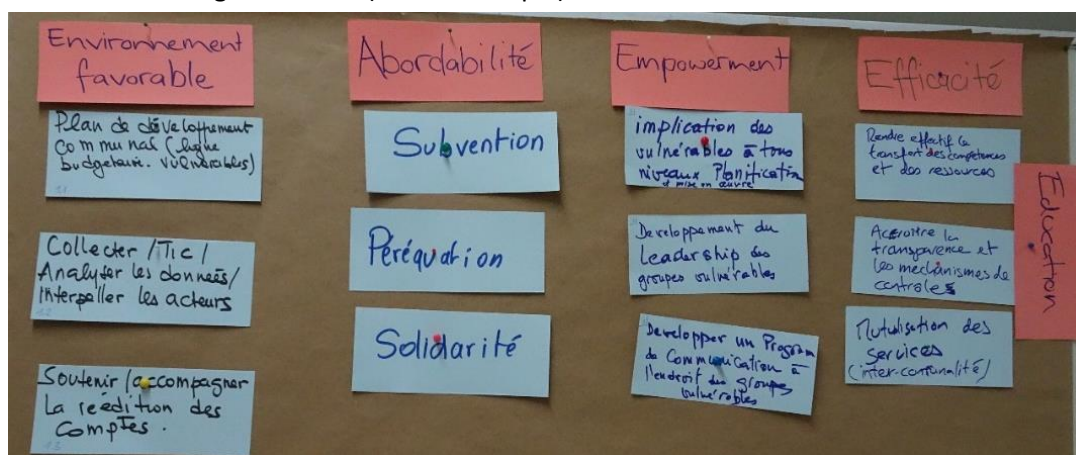 Environnement
favorable
Plan de développement
communal (ligne
budgetaire. vulnérables)
11
Collecter /Tic/
Analyser les données/
Interpeller les acteurs
12
Soutenir /accompagner
la reédition des
comptes.
13
Abordabilité
Subvention
Péréquation
Solidarité
Empowerment
implication des
vulnérables à tous
niveaux Planification
et mise en œuvre
Developpement du
Leadership des
groupes vulnérables
Developper un Program
de Communication à
l'endroit des groupes
vulnérables
Efficacité
Rendre effectif le
transfert des compétences
et des ressources
Accroître la
transparence et
les mechanismes de
controles
Mutulisation des
services
(inter-communalité)
Education